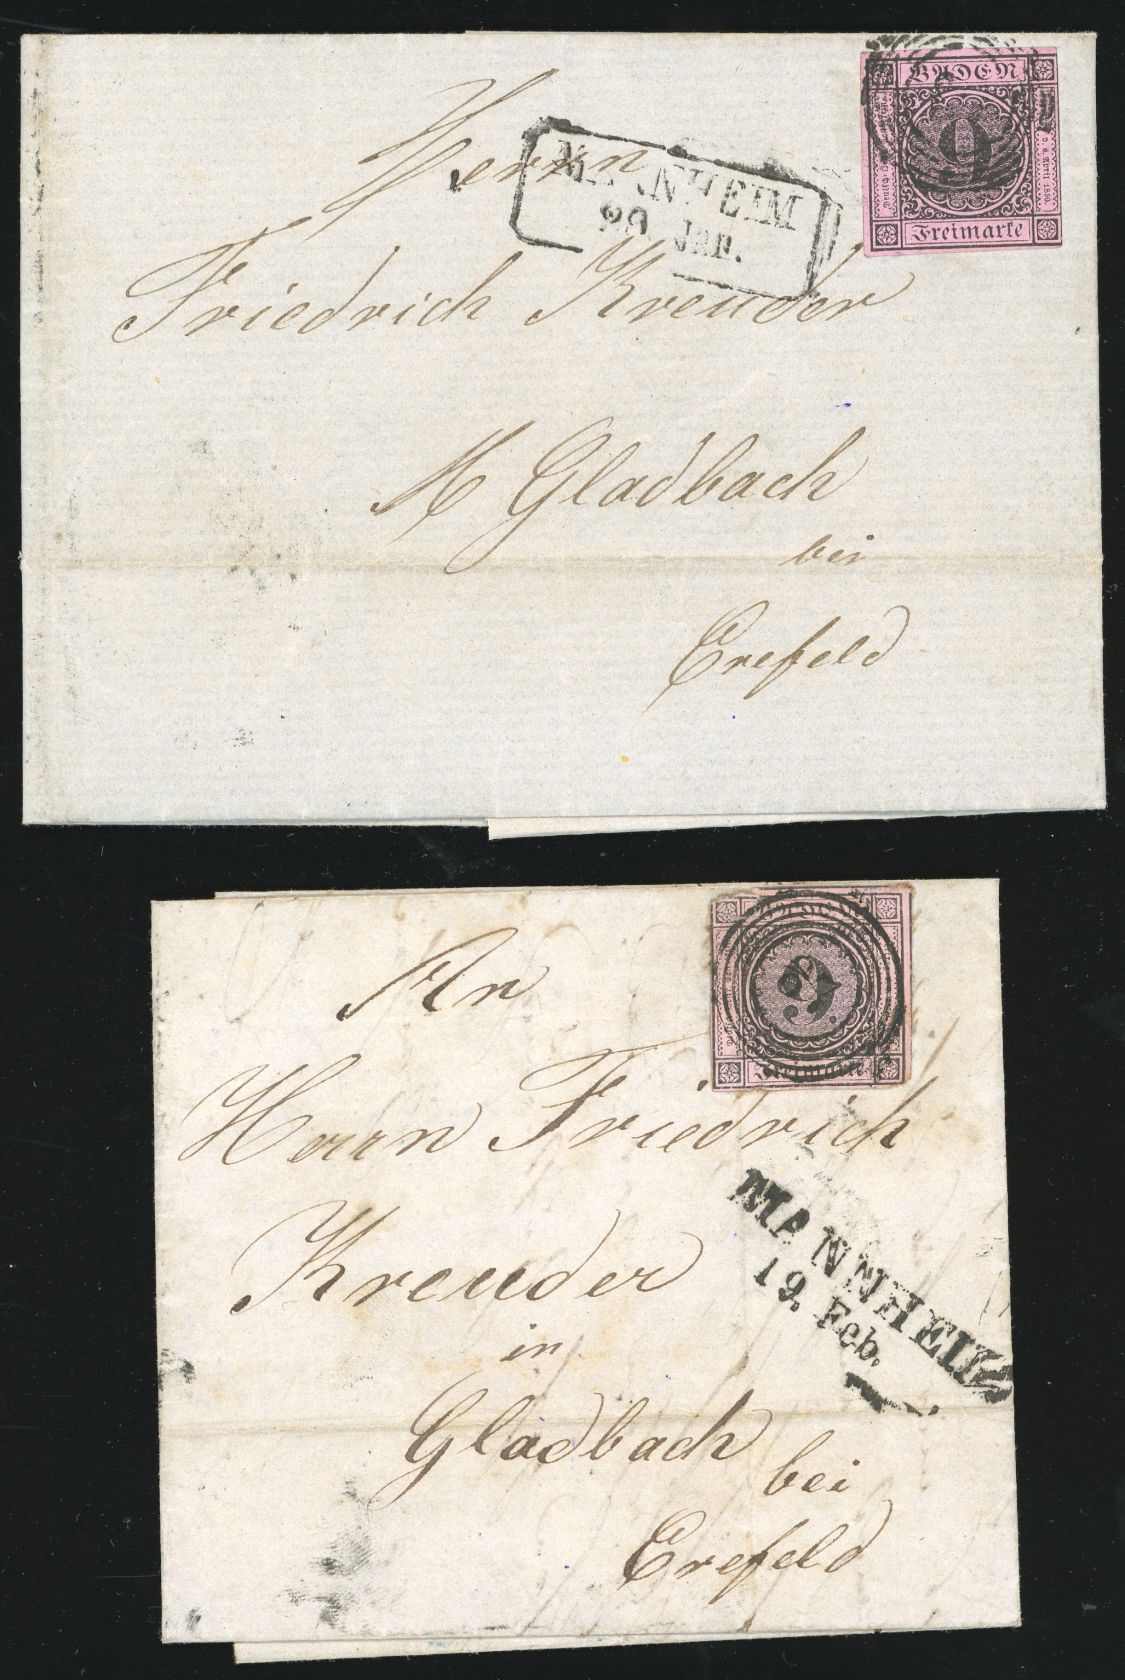 BADEN
9
Freimarke
MANNHEIM
29 Jan.
Herrn
Friedrich Kreuder
M Gladbach
bei
Crefeld
Freimarke
An
Herrn Friedrich
Kreuder
in
Gladbach
bei
Crefeld
MANNHEIM
19. Feb.